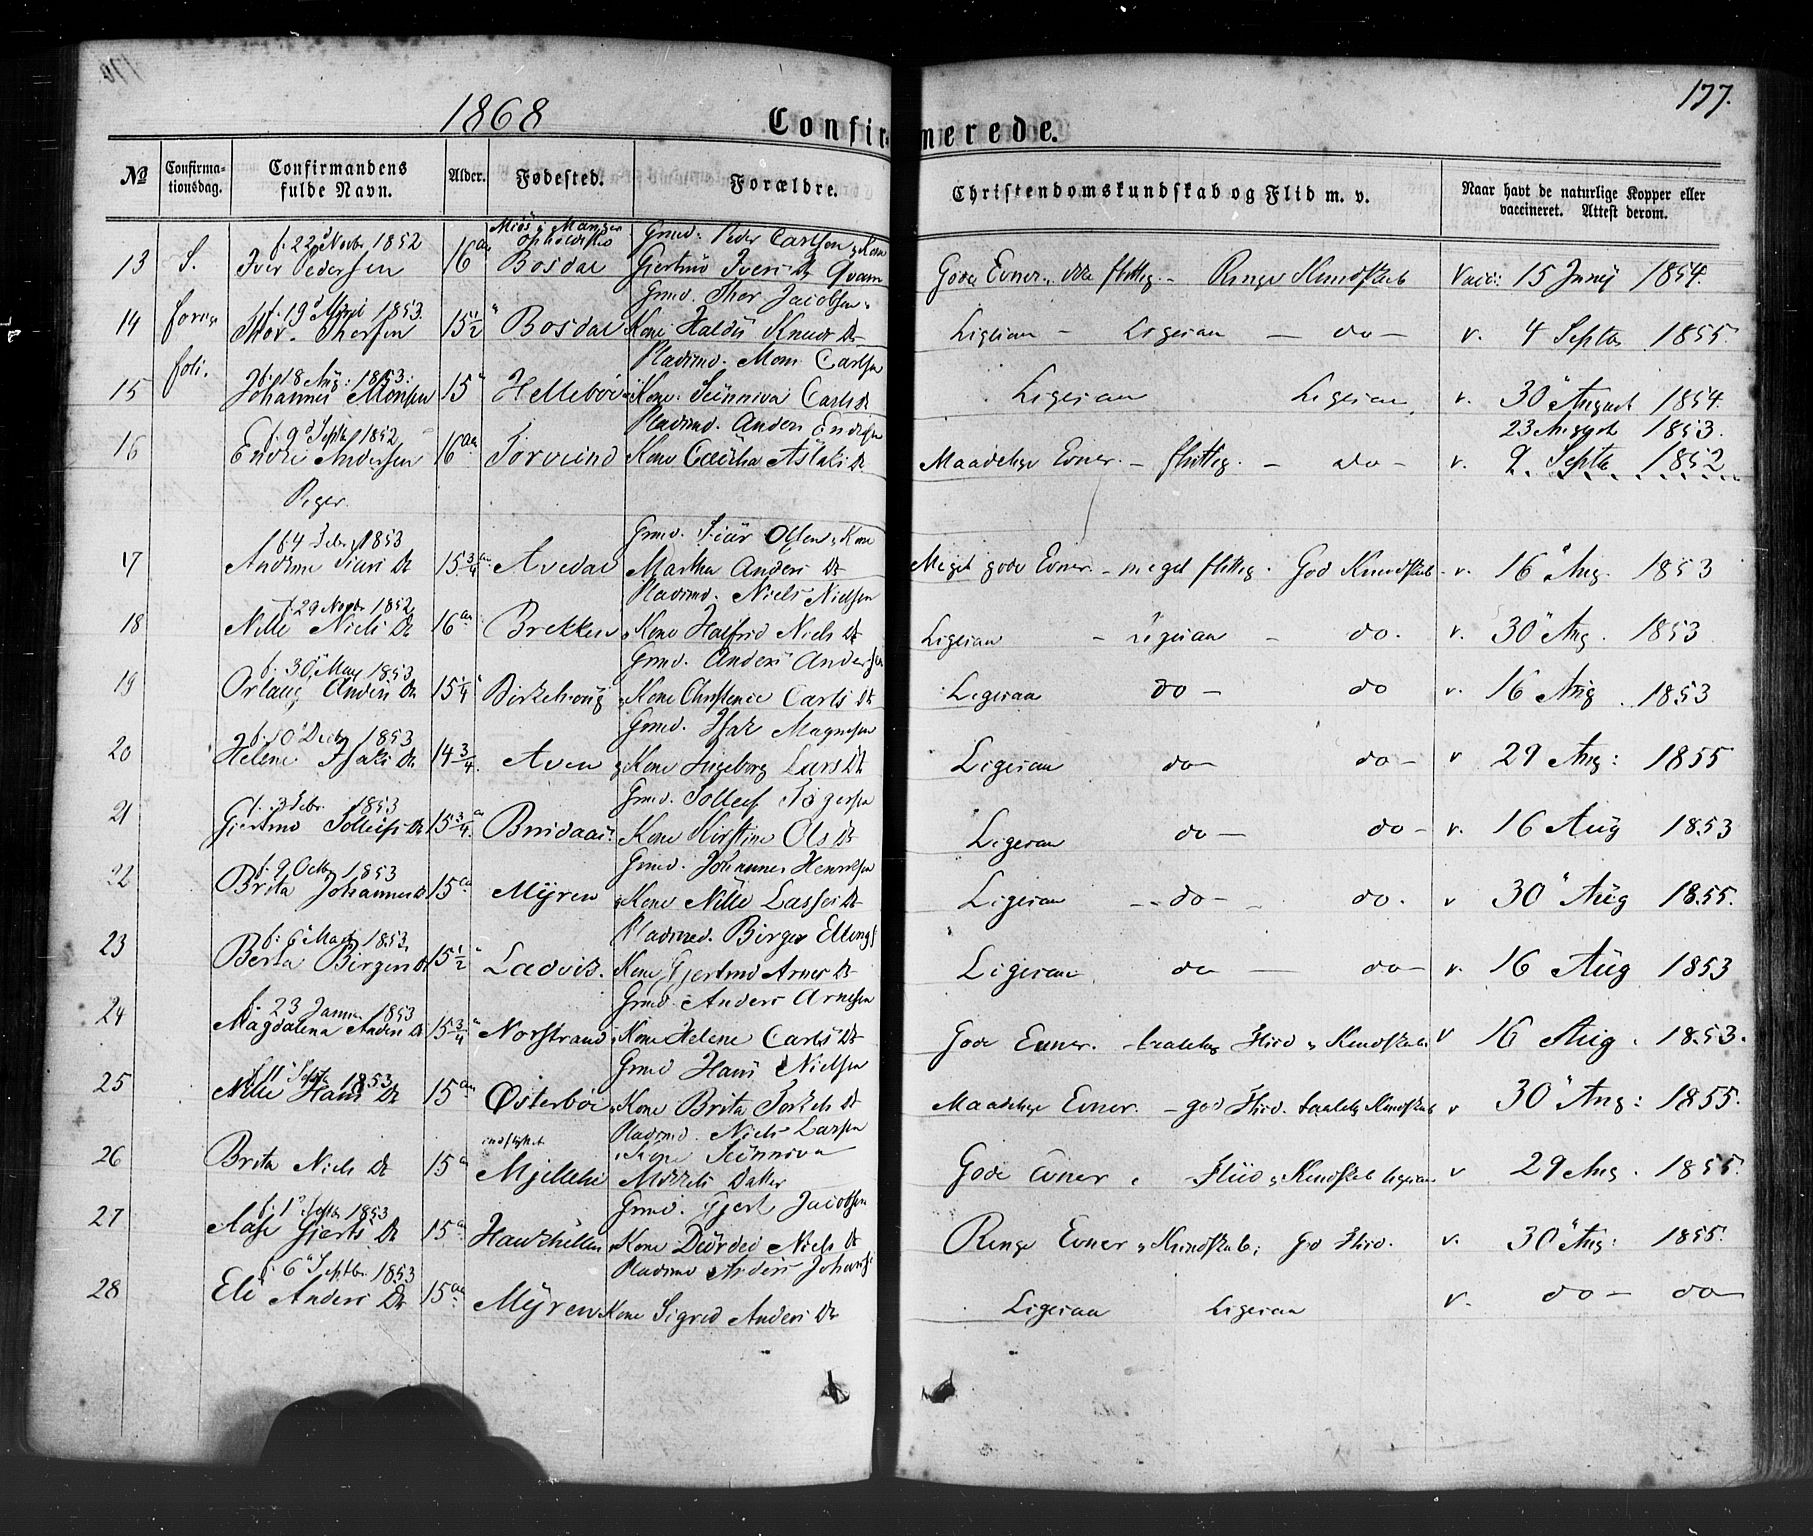 1868
177.
Confirmerede.
No Confirmationsdag. Confirmandens fulde Navn. Alder. Fødested. Forældre. Christendomskundskab og Flid m. v. Naar havt de naturlige Kopper eller vaccineret. Attest derom.
f. 22d Novbr 1852 Grmd. Peder Carlsen, Kone
13 S. Iver Pedersen 16 aar Bosdal Giertrud Ivers Dr Gode Evner, ikke flittig - Ringe Kundskab Vacc: 15 Junij 1854.
f. 19d April 1853. Grmd. Thor Jacobsen
14 forrige Thor Thorsen 15 1/2 " Bosdal Kone Haldis Knuds Dr Ligesaa - Ligesaa - do - v. 4 Septbr 1855.
foli. f. 18 Aug: 1853: Pladsmd. Mons Carlsen
15 Johannes Monsen 15 " Hellebøe Kone Sünniva Carls Dr Ligesaa Ligesaa v. 30" August 1854.
f. 9d Septbr 1852 Pladsmd. Anders Endresen 23 August 1853.
16 Endre Andersen 16 aar Torvund Kone Caürha Aslaks Dr Maadelige Evner. - flittig. - do - v. 9. Septbr 1852
Piger.
f. 4 Febr. 1853 Grmd. Siür Olsen, Kone
17 Andrine Siurs Dr 15 3/4 aar Avedal Martha Anders Dr Meget gode Evner - meget flittig. God Kundskab - v. 16" Aug. 1853
f. 29 Novbr 1852 Pladsmd. Niels Nielsen
18 Nille Niels Dr 16 aar Brekken Kone Halfrid Niels Dr Ligesaa - Ligesaa - do. v. 30" Aug. 1853
f. 30" May 1853 Grmd. Anders Andersen
19 Orlaug Anders Dr 15 1/4 " Birkehoug Kone Christence Carls Dr Ligesaa do - do v. 16 Aug. 1853
f. 10" Decbr 1853 Grmd. Isak Magnesen
20 Helene Isaks Dr 14 3/4 Aven Kone Ingeborg Lars Dr Ligesaa do - do - v 29 Aug: 1855
f. 3 Febr. 1853 Grmd. Tolleif
21 Giertrud Tolleifs Dr 15 3/4 Kone Kirstine Ols Dr Ligesaa do - do - v. 16 Aug 1853
f. 9 Octbr 1853 Grmd. Johannes Henriksen
22 Brita Johannes Dr 15 aar Myren Kone Nille Lasses Dr Ligesaa - do - do. v 30" Aug 1855.
f. 6 1853 Pladsmd. Birger Ellings
23 Berta Birgers Dr 15 1/2 " Ladvik. Kone Gjertrud Arnes Dr Ligesaa do - do - v. 16 Aug 1853
f. 23 Januar 1853 Grmd. Anders Arnesen
24 Magdalena Anders Dr 15 3/4 Norstrand Kone Helene Carls Dr Gode Evner. - taalelig Flid & Kundskab v 16 Aug. 1853.
f. 11" Septbr 1853 Grmd Hans Nielsen
25 Nille Hans Dr 15 aar Østerbøe Kone Brita Torkels Dr Maadelige Evner. - god Flid. taalelig Kundskab v 30" Aug: 1855.
indflyttet Pladsmd. Niels Larsen
26 Brita Niels Dr 15 a Kone Sünniva Mikkels Datter Gode Evner, Fliid & Kundskab ligesaa v 29 Aug. 1855.
f. 1" Septbr 1853 Grmd. Gjert Jacobsen
27 Aase Gjerts Dr 15 a Haukhellen Kone Dørdei Niels Dr Ringe Evner & Kundskab, god Flid. v. 30" Aug: 1855.
f. 6" Septbr 1853 Pladsmd Anders
28 Eli Anders Dr 15 aar Myren Kone Sigrid Anders Dr Ligesaa Ligesaa v. do - do -